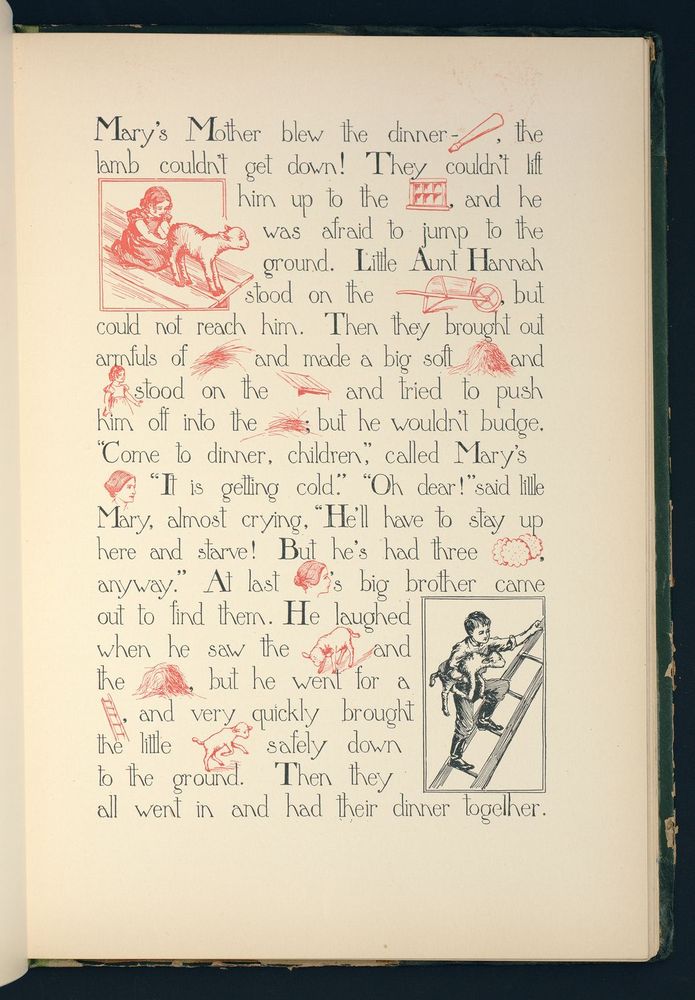 Mary's Mother blew the dinner- , the
lamb couldn't get down! They couldn't lift
him up to the , and he
was afraid to jump to the
ground. Little Aunt Hannah
stood on the , but
could not reach him. Then they brought out
armfuls of and made a big soft and
stood on the and tried to push
him off into the ; but he wouldn't budge.
"Come to dinner, children," called Mary's
"It is getting cold." "Oh dear!" said little
Mary, almost crying, "He'll have to stay up
here and starve! But he's had three ,
anyway." At last 's big brother came
out to find them. He laughed
when he saw the and
the , but he went for a
, and very quickly brought
the little safely down
to the ground. Then they
all went in and had their dinner together.